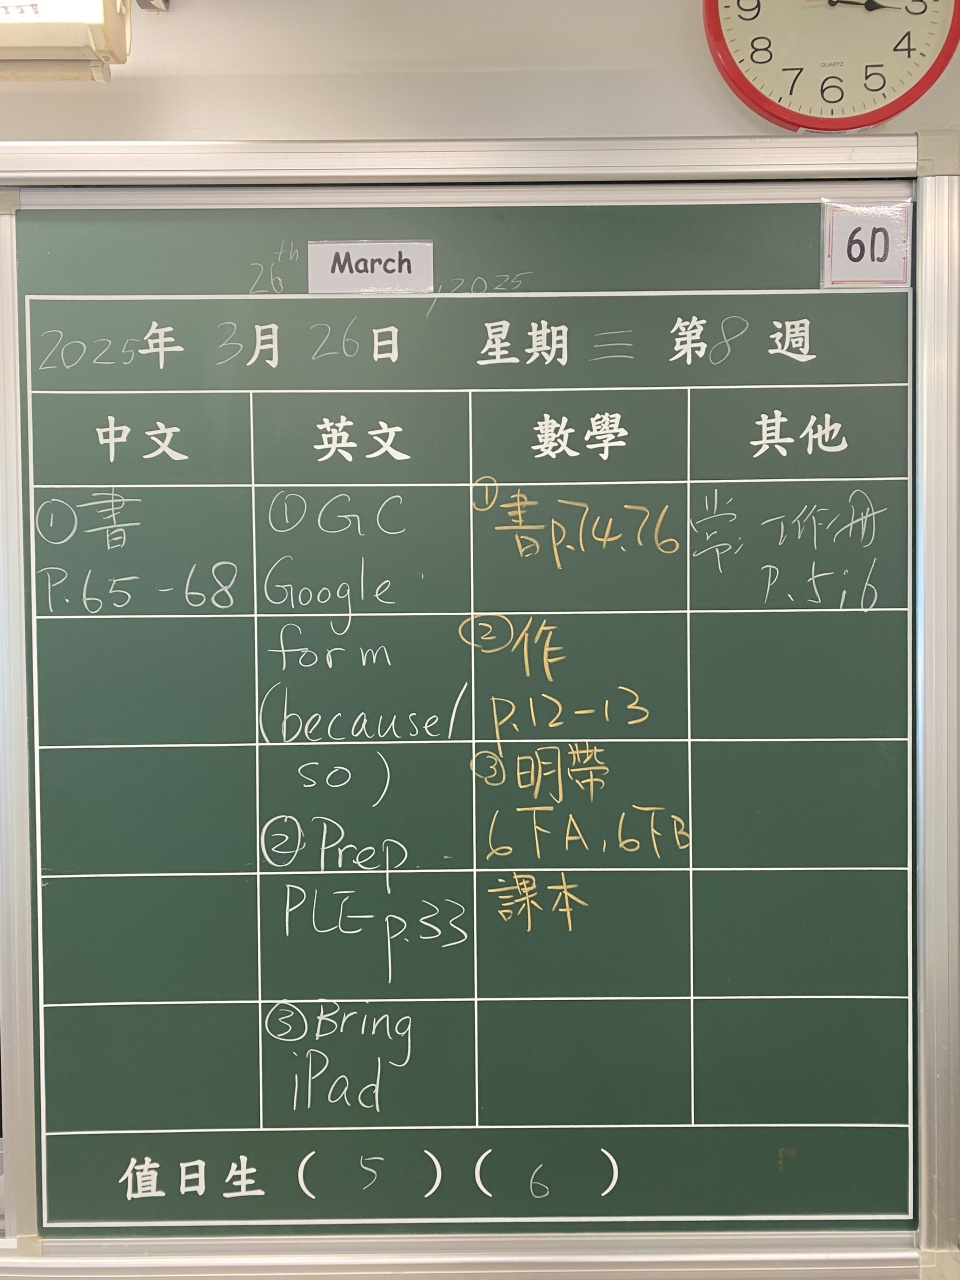 9 3
8 4
7 6 5
QUARTZ
6D
26th March, 2025
2025年 3月 26日 星期三 第8週
中文 英文 數學 其他
①書
P.65-68
①GC
Google
form
(because/
so)
②Prep.
PLE p.33
③Bring
iPad
①書p.74.76
②作
p.12-13
③明帶
6下A,6下B
課本
常 工作冊
P.5;6
值日生 ( 5 ) ( 6 )